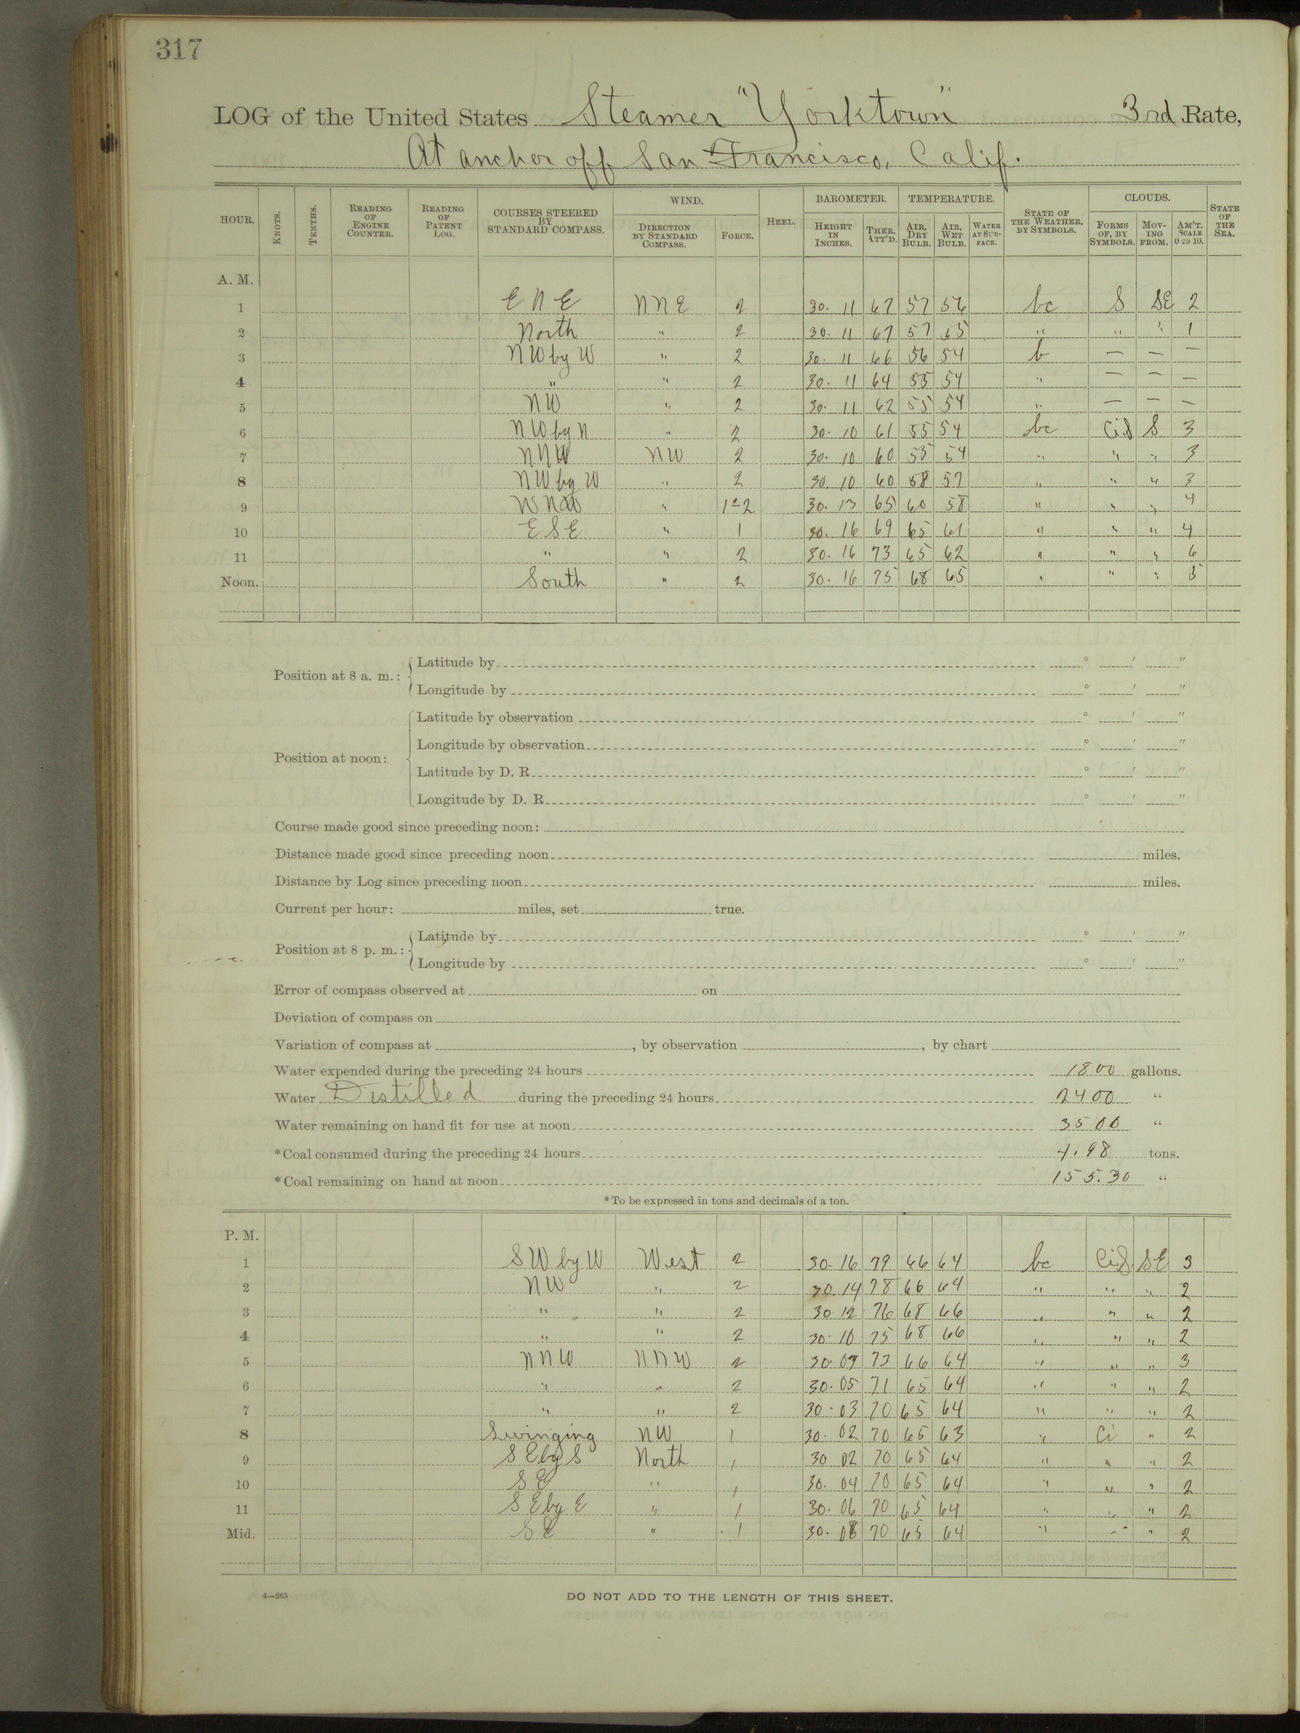 317
LOG of the United States Steamer "Yorktown" 3rd Rate,
At anchor off San Francisco, Calif.
HOUR. KNOTS. TENTHS. READING OF ENGINE COUNTER. READING OF PATENT LOG. COURSES STEERED BY STANDARD COMPASS. WIND. DIRECTION BY STANDARD COMPASS. FORCE. HEEL. BAROMETER. HEIGHT IN INCHES. THER. ATT'D. TEMPERATURE. AIR, DRY BULB. AIR, WET BULB. WATER AT SURFACE. STATE OF THE WEATHER, BY SYMBOLS. CLOUDS. FORMS OF, BY SYMBOLS. MOVING FROM. AM'T. SCALE 0 TO 10. STATE OF THE SEA.
A. M.
1 E N E N N E 2 30. 11 67 57 56 bc S SE 2
2 North " 2 30. 11 67 57 " " " 1
3 NW by W " 2 30. 11 66 56 54 b — — —
4 " " 2 30. 11 64 55 54 " — — —
5 NW " 2 30. 11 62 55 54 " — — —
6 NW by N " 2 30. 10 61 55 54 bc CiS S 3
7 NNW NW 2 30. 10 60 55 54 " " " 3
8 NW by W " 2 30. 10 60 58 57 " " " 3
9 WNW " 1-2 30. 13 65 60 58 " " " 4
10 E S E " 1 30. 16 69 65 61 " " " 4
11 " " 2 30. 16 73 65 62 " " " 6
Noon. South " 2 30. 16 75 68 65 " " " 5
Position at 8 a. m.: Latitude by ° ' "
Longitude by ° ' "
Position at noon: Latitude by observation ° ' "
Longitude by observation ° ' "
Latitude by D. R. ° ' "
Longitude by D. R. ° ' "
Course made good since preceding noon:
Distance made good since preceding noon miles.
Distance by Log since preceding noon miles.
Current per hour: miles, set true.
Position at 8 p. m.: Latitude by ° ' "
Longitude by ° ' "
Error of compass observed at on
Deviation of compass on
Variation of compass at , by observation , by chart
Water expended during the preceding 24 hours 1800 gallons.
Water Distilled during the preceding 24 hours 2400 "
Water remaining on hand fit for use at noon 3500 "
*Coal consumed during the preceding 24 hours 4.98 tons.
*Coal remaining on hand at noon 155.30 "
*To be expressed in tons and decimals of a ton.
P. M.
1 SW by W West 2 30. 16 79 66 64 bc CiS SE 3
2 NW " 2 30. 14 78 66 64 " " " 2
3 " " 2 30. 12 76 68 66 " " " 2
4 " " 2 30. 10 75 68 66 " " " 2
5 NNW NNW 2 30. 07 73 66 64 " " " 3
6 " " 2 30. 05 71 65 64 " " " 2
7 " " 2 30. 03 70 65 64 " " " 2
8 Swinging NW 1 30. 02 70 65 63 " Ci " 2
9 SE by S North 1 30 02 70 65 64 " " " 2
10 SE " 1 30. 04 70 65 64 " " " 2
11 SE by E " 1 30. 06 70 65 64 " " " 2
Mid. SE " 1 30. 08 70 65 64 " " " 2
4—265
DO NOT ADD TO THE LENGTH OF THIS SHEET.